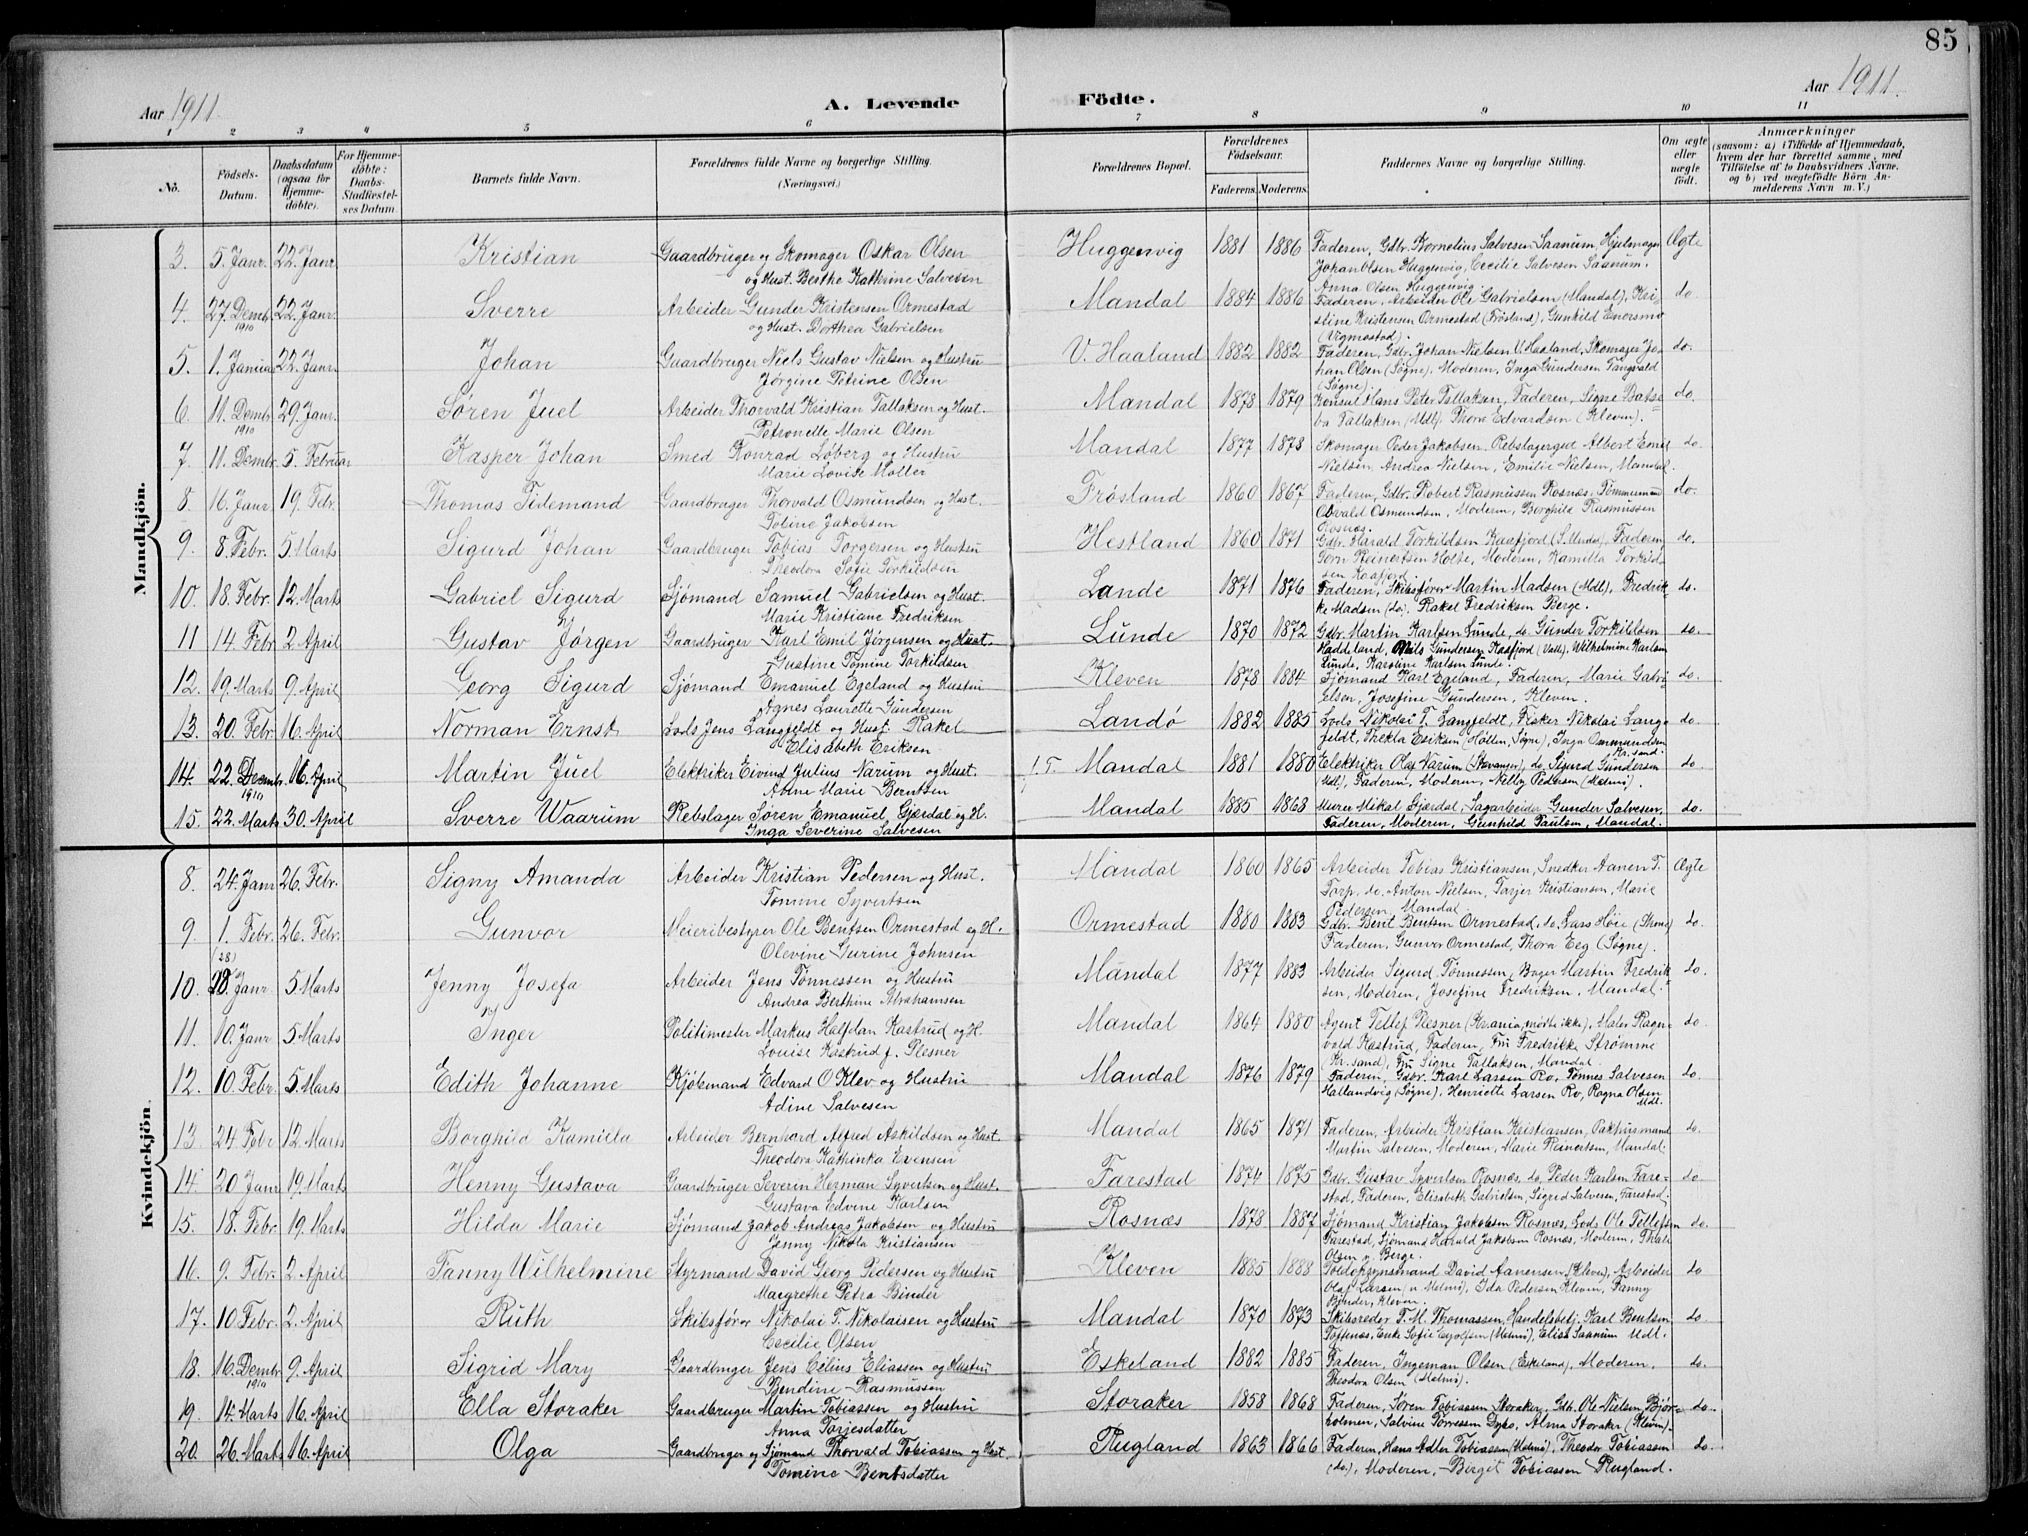 85
Aar 1911. A. Levende Födte. Aar 1911.
1 2 3 4 5 6 7 8 9 10 11
No. Födsels-Datum. Daabsdatum (ogsaa for Hjemme-döbte). For Hjemme-döbte: Daabs-Stadfæstel-ses Datum Barnets fulde Navn. Forældrenes fulde Navne og borgerlige Stilling. (Næringsvei.) Forældrenes Bopæl. Forældrenes Födselsaar. Faderens. Moderens. Faddernes Navne og borgerlige Stilling. Om ægte eller uægte födt. Anmærkninger (saasom: a) i Tilfælde af Hjemmedaab, hvem der har forrettet samme, med Tilföielse af to Daabsvidners Navne. og b) ved uægtefödte Börn An-melderens Navn m. V.)
Mandkjön.
3. 5. Janr. 22. Janr. Kristian Gaardbruger og Skomager Oskar Olsen Huggenvig 1881 1886 Faderen, Gdbr. Kornelius Salvesen Saanum, Hjulmager Ægte
og Hust. Berthe Kathrine Salvesen Johan Olsen Huggenvig, Cecilie Salvesen Saanum.
Anna Olsen Huggenvig.
4. 27. Dembr. 1910 22. Janr. Sverre Arbeider Gunder Kristensen Ormestad Mandal 1884 1886 Faderen, Arbeider Ole Gabrielsen (Mandal), Kri- do.
og Hust. Dorthea Gabrielsen stine Kristensen Ormestad (Frösland), Gunhild Enersmo
(Vigmostad).
5. 1. Januar 22. Janr. Johan Gaardbruger Niels Gustav Nielsen og Hustru V. Haaland 1882 1882 Faderen, Gdbr. Johan Nielsen V. Haaland, Skomager Jo- do.
Jørgine Petrine Olsen han Olsen (Søgne), Moderen, Inga Gundersen Tangvald
(Søgne).
6. 11. Dembr. 1910 29. Janr. Søren Juel Arbeider Thorvald Kristian Tallaksen og Hust. Mandal 1878 1879 Konsul Hans Peter Tallaksen, Faderen, Signe Batse- do.
Petronelle Marie Olsen ba Tallaksen (Mdl), Thora Edvardsen (Kleven).
7. 11. Dembr. 5. Februar Kasper Johan Smed Konrad Løberg og Hustru Mandal 1877 1878 Skomager Peder Jakobsen, Rebslagergut Albert Emil do.
Marie Lovise Møller Nielsen, Andrea Nielsen, Emilie Nielsen, Mandal.
8 16. Janr 19. Febr. Thomas Tidemand Gaardbruger Thorvald Osmundsen og Hust. Frösland 1860 1867 Faderen, Gdbr. Robert Rasmussen Rosnæs, Tømmermand do.
Toline Jakobsen Osvald Osmundsen, Moderen, Borghild Rasmussen
Rosnæs.
9. 8. Febr. 5. Marts Sigurd Johan Gaardbruger Tobias Torgersen og Hustru Hestland 1860 1871 Gdbr. Harald Torkildsen Kaafjord (S. Undal), Faderen do.
Theodora Sofie Torkildsen Torn Reinertsen Holte, Moderen, Kamilla Torkild-
sen Kaafjord.
10. 18. Febr. 12. Marts Gabriel Sigurd Sjømand Samuel Gabrielsen og Hust. Lande 1871 1876 Faderen, Skibsfører Martin Madsen (Mdl), Fredrik- do.
Marie Kristiane Fredriksen ke Madsen (do). Rakel Fredriksen Berge.
11 14. Febr 2. April Gustav Jørgen Gaardbruger Karl Emil Jørgensen og Hust. Lunde 1870 1872 Gdbr. Martin Karlsen Lunde, do. Gunder Torkildsen do.
Gustine Tomine Torkildsen Haddeland, Nils Gundersen Kaafjord (Vall), Wilhelmine Karlsen
Lunde, Karoline Karlsen Lunde.
12. 19. Marts 9. April Georg Sigurd Sjømand Emanuel Egeland og Hustru Kleven 1878 1884 Sjømand Karl Egeland, Faderen, Marie Gabri- do.
Agnes Laurette Gundersen elsen, Josefine Gundersen, Kleven.
13. 20. Febr. 16. April Norman Ernst Lods Jens Langfeldt og Hust. Rakel Landø 1882 1885 Lods Nikolai T. Langfeldt, Fisker Nikolai Lang- do.
Elisabeth Eriksen feldt, Thekla Eriksen (Høllen, Søgne), Inga Osmundsen
Kr. sand.
14. 22. Decembr. 1910 16. April Martin Juel Elektriker Eivind Julius Narum og Hust. f. T. Mandal 1881 1880 Elektriker Olaf Narum (Stavanger), do. Sigurd Gundersen do.
Anne Marie Berntsen (Mdl), Faderen, Moderen, Nelly Pedersen (Malmö).
15. 22. Marts 30. April Sverre Waarum Rebslager Søren Emanuel Gjærdal og H. Mandal 1885 1868 Murer Mikal Gjærdal, Sagarbeider Gunder Salvesen, do.
Inga Severine Salvesen Faderen, Moderen, Gunhild Paulsen, Mandal.
Kvindekjön.
8. 24. Janr 26. Febr. Signy Amanda Arbeider Kristian Pedersen og Hust. Mandal 1860 1865 Arbeider Tobias Kristiansen, Snedker Aanen T. Ægte
Tomine Syvertsen Torp, do. Anton Nielsen, Tarjer Kristiansen, Marie
Pedersen, Mandal.
9. 1. Febr. 26. Febr. Gunvor Meieribestyrer Ole Bentsen Ormestad og H. Ormestad 1880 1883 Gdbr. Berit Bentsen Ormestad, do. Lars Høie (Thime) do.
Olevine Gurine Johnsen Faderen, Gunvor Ormestad, Thora Eeg (Søgne).
(28)
10. 28. Janr 5. Marts Jenny Josefa Arbeider Jens Tønnessen og Hustru Mandal 1877 1883 Arbeider Sigurd Tønnessen, Bager Martin Fredrik- do.
Andrea Berthine Abrahamsen sen, Moderen, Josefine Fredriksen, Mandal.
11. 10. Janr 5. Marts Inger Politimester Markus Halfdan Kastrud og H. Mandal 1864 1880 Agent Tellef Plesner (Krania, mødte ikke), Maler Ragn- do.
Louise Kastrud f. Plesner vald Kastrud, Faderen, Fru Fredrikke Strømme
(Kr. sand), Fru Signe Tallaksen, Mandal.
12. 10. Febr. 5. Marts Edith Johanne Kjøbmand Edvard O Klev og Hustru Mandal 1876 1879 Faderen, Gdbr. Karl Larsen Ro, Tønnes Salvesen do.
Adine Salvesen Hallandvig (Søgne), Henriette Larsen Ro, Ragna Olsen
Mdl.
13. 24. Febr 12. Marts Borghild Kamilla Arbeider Bernhard Alfred Askildsen og Hust Mandal 1865 1871 Faderen, Arbeider Kristian Kristiansen, Pakhusmand do.
Theodora Kathinka Evensen Martin Salvesen, Moderen, Marie Reinertsen, Mandal.
14. 20 Janr 19. Marts Henny Gustava Gaardbruger Severin Herman Syvertsen og Hust. Farestad 1874 1875 Gdbr. Gustav Syvertsen Rosnæs, do, Peder Karlsen Fare- do.
Gustava Edvine Karlsen stad, Faderen, Elisabeth Gabrielsen, Sigrid Salvesen, Farestad.
15. 18. Febr. 19. Marts Hilda Marie Sjømand Jakob Andreas Jakobsen og Hustru Rosnæs 1878 1887 Sjømand Kristian Jakobsen Rosnæs, Lods Ole Tellefsen do.
Jenny Nikola Kristiansen Farestad, Sjømand Harald Jakobsen Rosnæs, Moderen, Thale
Olsen, Berge.
16. 9. Febr. 2. April Fanny Wilhelmine Styrmand David Georg Pedersen og Hustru Kleven 1885 1888 Toldopsynsmand David Aanensen (Kleven), Arbeider do
Margrethe Petra Binder Olaf Larsen (Malmö), Ida Pedersen Kleven, Fanny
Binder, Kleven.
17. 10. Febr. 2. April Ruth Skibsfører Nikolai T. Nikolaisen og Hustru Mandal 1870 1873 Skibsreder T. M. Thomassen, Handelsbetj. Karl Bentsen do
Cecilie Olsen Toftenæs, Enke Sofie Eyolfsen (Malmö), Elise Saanum Mdl.
18. 16. Dembr 1910 9. April Sigrid Mary Gaardbruger Jens Celius Eliassen og Hustru Eskeland 1882 1885 Faderen, Ingeman Olsen (Eskeland), Moderen, do.
Bendine Rasmussen Theodora Olsen (Malmö).
19. 14. Marts 16. April Ella Storaker Gaardbruger Martin Tobiassen og Hustru Storaker 1858 1868 Faderen, Søren Tobiassen Storaker, Gdb. Ole Nielsen, Bjør- do.
Anna Torjesdatter holmen, Salvine Torressen Dybo, Alma Storaker (Kleven).
20. 26. Marts 16. April Olga Gaardbruger og Sjømand Thorvald Tobiassen og Hust. Rugland 1863 1866 Faderen, Hans Adler Tobiassen (Malmö), Theodor Tobiassen do.
Tomine Bentsdatter (do.), Moderen, Birgit Tobiassen Rugland.